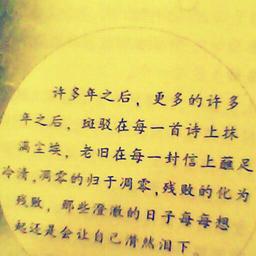 许多年之后，更多的许多
年之后，斑驳在每一首诗上抹
满尘埃，老旧在每一封信上蘸足
冷清，凋零的归于凋零，残败的化为
残败，那些澄澈的日子每每想
起还是会让自己潸然泪下。